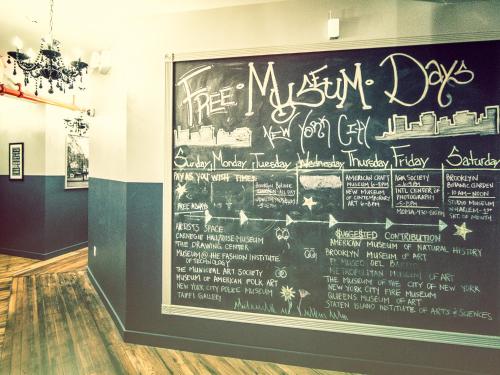 Free Museum Days
New York City
Sunday Monday Tuesday Wednesday Thursday Friday Saturday
Pay as you wish times
Brooklyn Botanic
Garden - All Day
American Craft
Museum 6-8pm
New Museum of
Contemporary
Art 6-8pm
Asia Society
6-9pm
Intl Center of
Photography
5-8pm
Brooklyn
Botanic Garden
10am-Noon
Studio Museum
in Harlem - 1st
Sat. of Month
Free Always
Artists Space
Carnegie Hall/Rose Museum
The Drawing Center
Museum @ the Fashion Institute
of Technology
The Municipal Art Society
Museum of American Folk Art
New York City Police Museum
Gallery
Suggested Contribution
American Museum of Natural History
Brooklyn Museum of Art
El Museo del Barrio
Metropolitan Museum of Art
The Museum of the City of New York
New York City Fire Museum
Queens Museum of Art
Staten Island Institute of Arts & Sciences